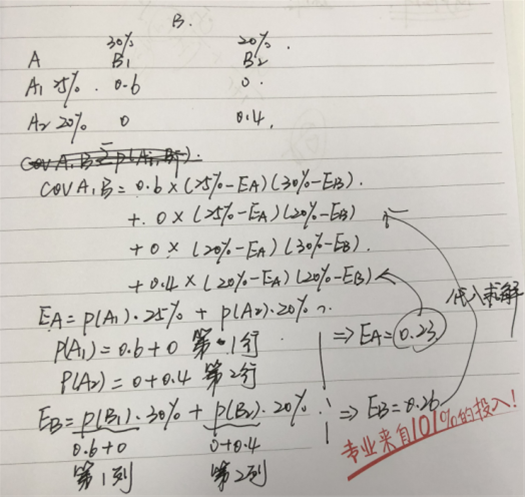 B.
30% 20%.
A B₁ B₂
A₁ 25% 0.6 0.
A₂ 20% 0 0.4.
COV A,B = Σ P(Ai, Bj).
COV A,B = 0.6 × (25%-EA)(30%-EB).
+ 0 × (25%-EA)(20%-EB)
+ 0 × (20%-EA)(30%-EB).
+ 0.4 × (20%-EA)(20%-EB)
代入求解
EA = P(A₁)·25% + P(A₂)·20%
⇒ EA = 0.23
P(A₁) = 0.6+0 第1行
P(A₂) = 0+0.4 第2行
EB = P(B₁)·30% + P(B₂)·20%
⇒ EB = 0.26
0.6+0 0+0.4
第1列 第2列
专业来自101%的投入!